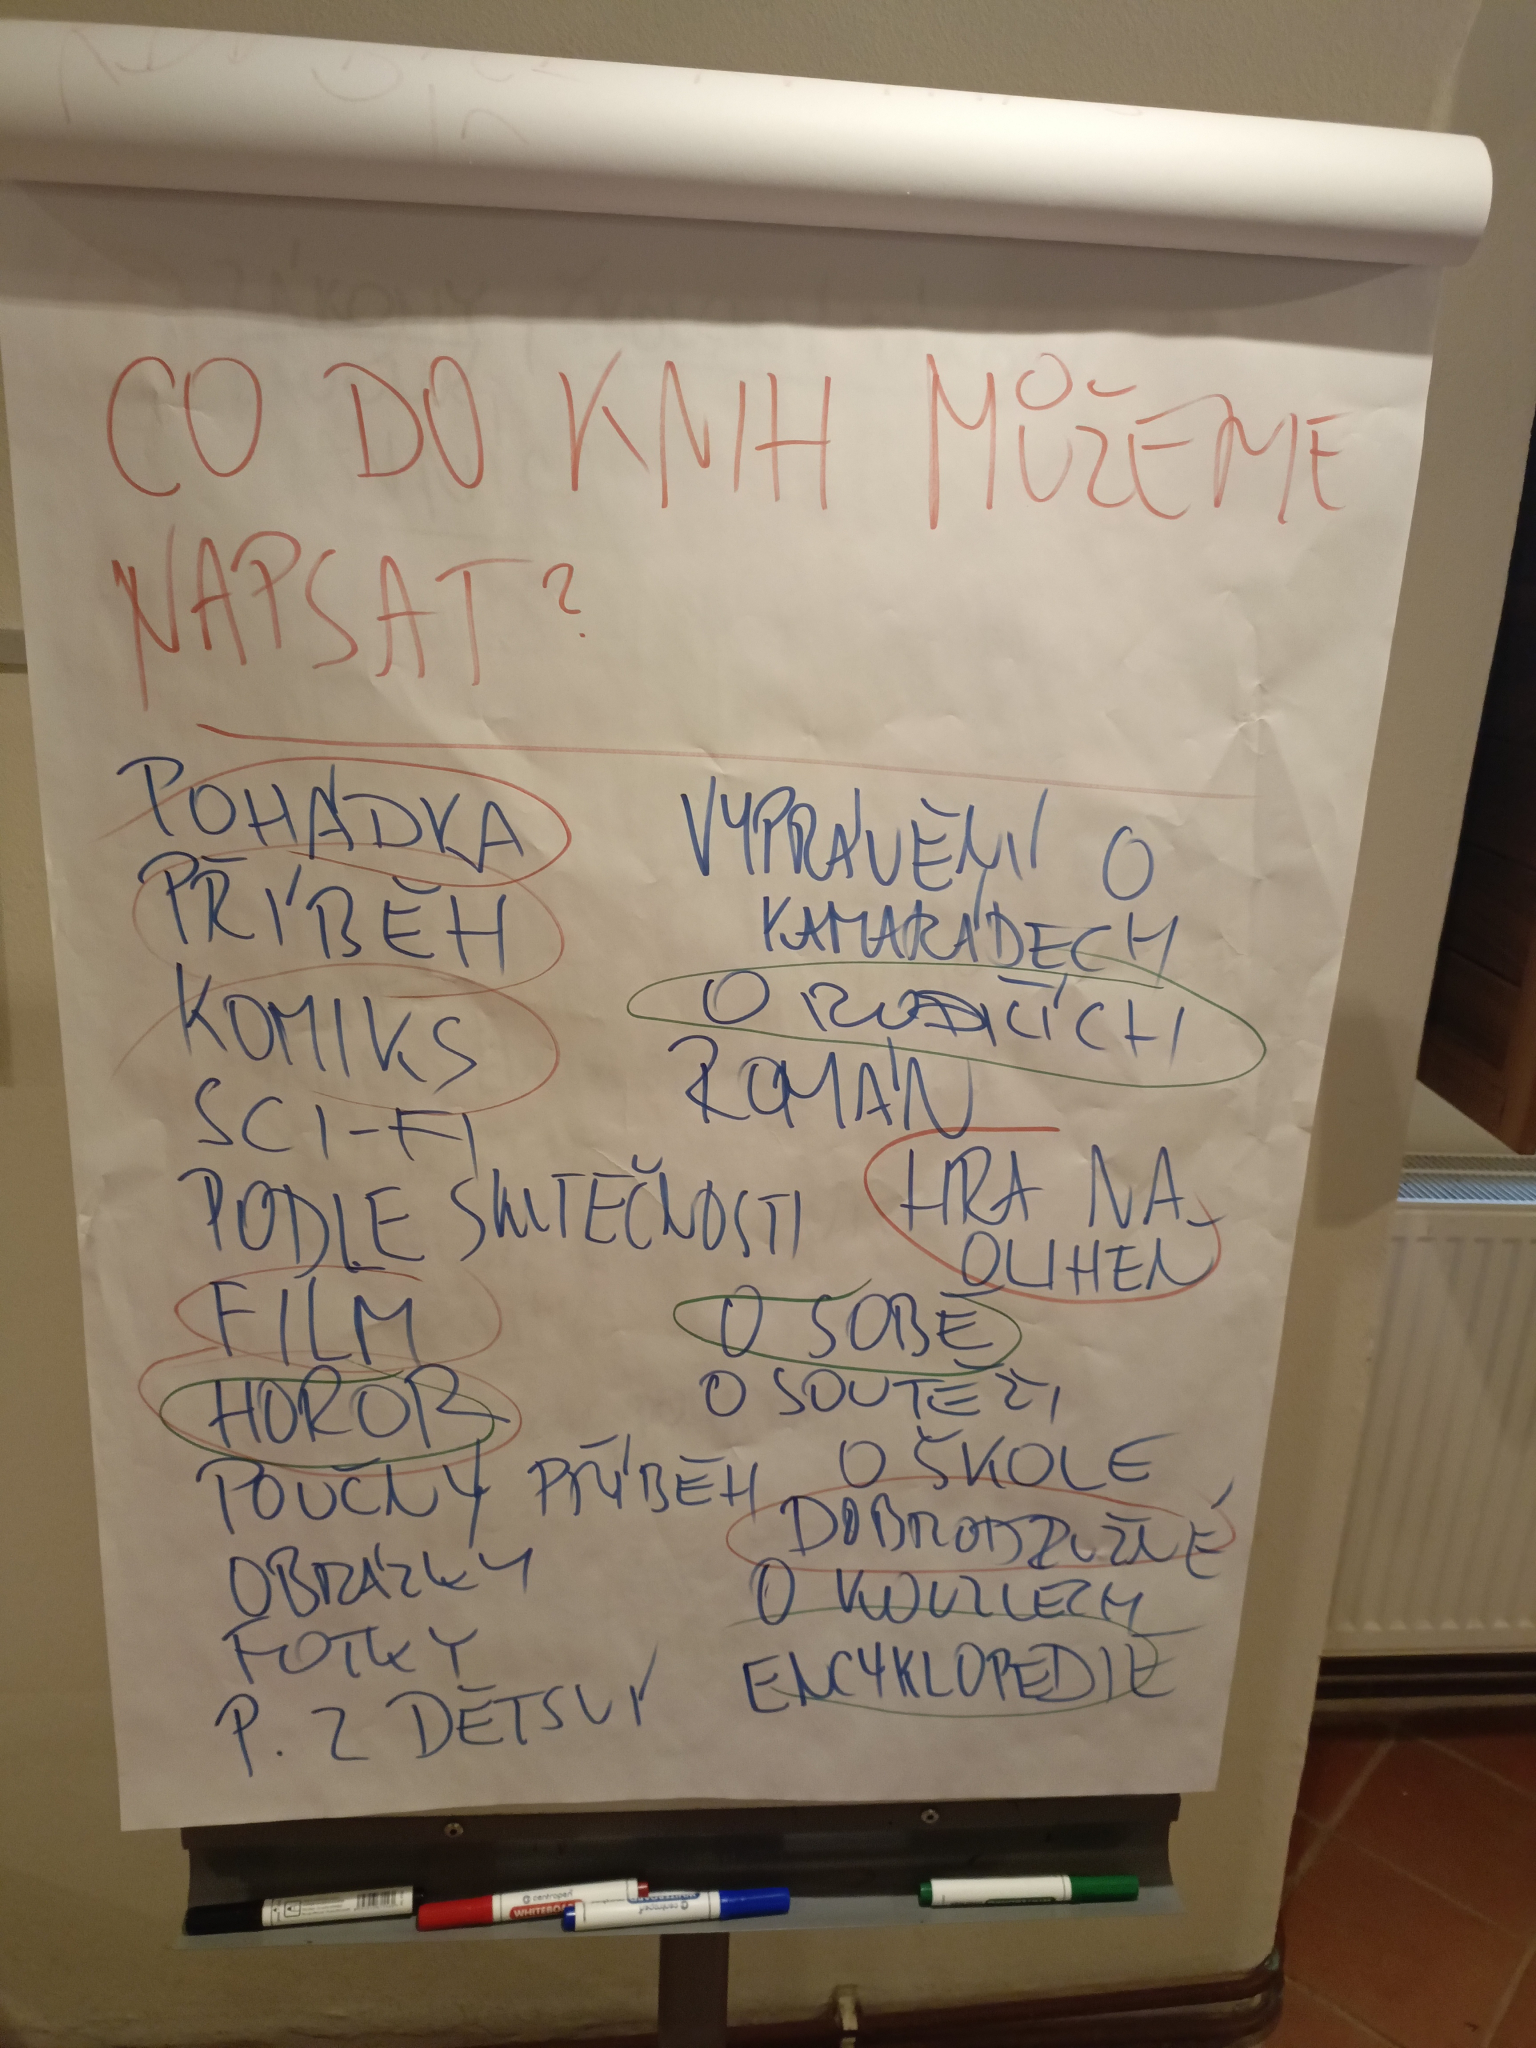 CO DO KNIH MŮŽEME
NAPSAT?
POHÁDKA
PŘÍBĚH
KOMIKS
SCI-FI
PODLE SKUTEČNOSTI
FILM
HOROR
POUČNÝ PŘÍBĚH
OBRÁZKY
FOTKY
P. Z DĚTSVÍ
VYPRÁVĚNÍ O
KAMARÁDECH
O RODIČÍCH
ROMÁN
HRA NA
OLIHEŇ
O SOBĚ
O SOUTĚŽI
O ŠKOLE
DOBRODRUŽNÉ
O KOUZLECH
ENCYKLOPEDIE
centropen
WHITEBOA